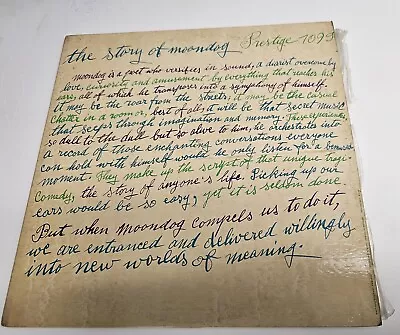 the story of moondog Prestige 7099
moondog is a poet who versifies in sound, a diarist overcome by
love, curiosity and amusement by everything that reaches his
ears, all of which he transposes into a symphony of himself.
it may be the roar from the streets, it may be the casual
chatter in a room or, best of all, it will be that secret music
that seeps through imagination and memory. Those experiences
so dell to the dull but so alive to him, he orchestrates into
a record of those enchanting conversations everyone
can hold with himself would he only listen for a
moment. They make up the script of that unique tragi-
comedy, the story of anyone's life. Picking up our
ears would be so easy, yet it is seldom done
But when Moondog compels us to do it,
we are entranced and delivered willingly
into new worlds of meaning.